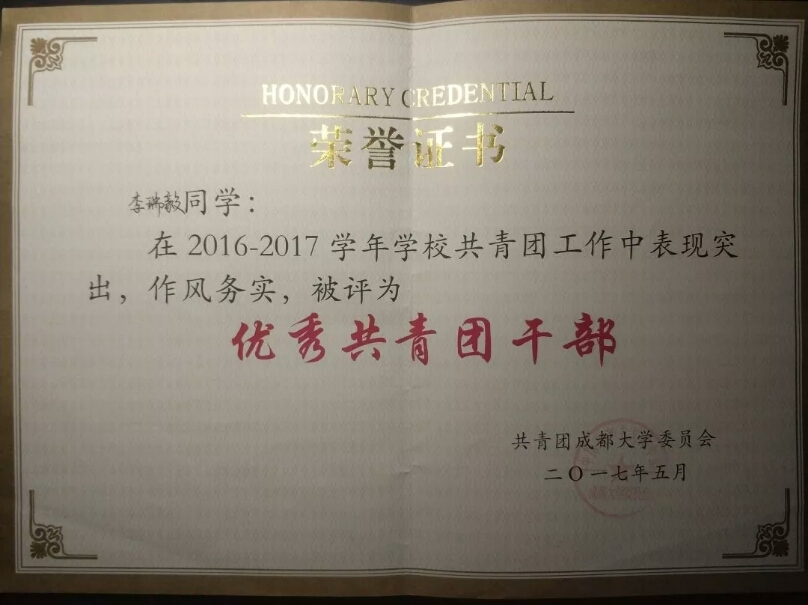 HONORARY CREDENTIAL
荣誉证书
李瑞毅同学：
在 2016-2017 学年学校共青团工作中表现突
出，作风务实，被评为
优秀共青团干部
共青团成都大学委员会
二〇一七年五月